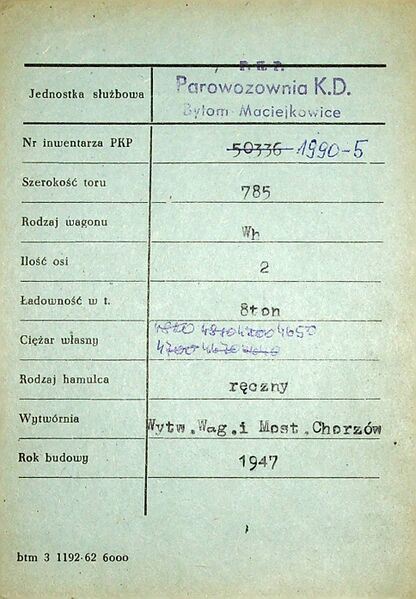 P. K. P.
Jednostka służbowa Parowozownia K.D.
Bytom-Maciejkowice
Nr inwentarza PKP 50336 1990-5
Szerokość toru 785
Rodzaj wagonu Wh
Ilość osi 2
Ładowność w t. 8ton
4200 4650
Ciężar własny 4700 4670
Rodzaj hamulca ręczny
Wytwórnia Wytw.Wag.i Most.Chorzów
Rok budowy 1947
btm 3 1192-62 6000